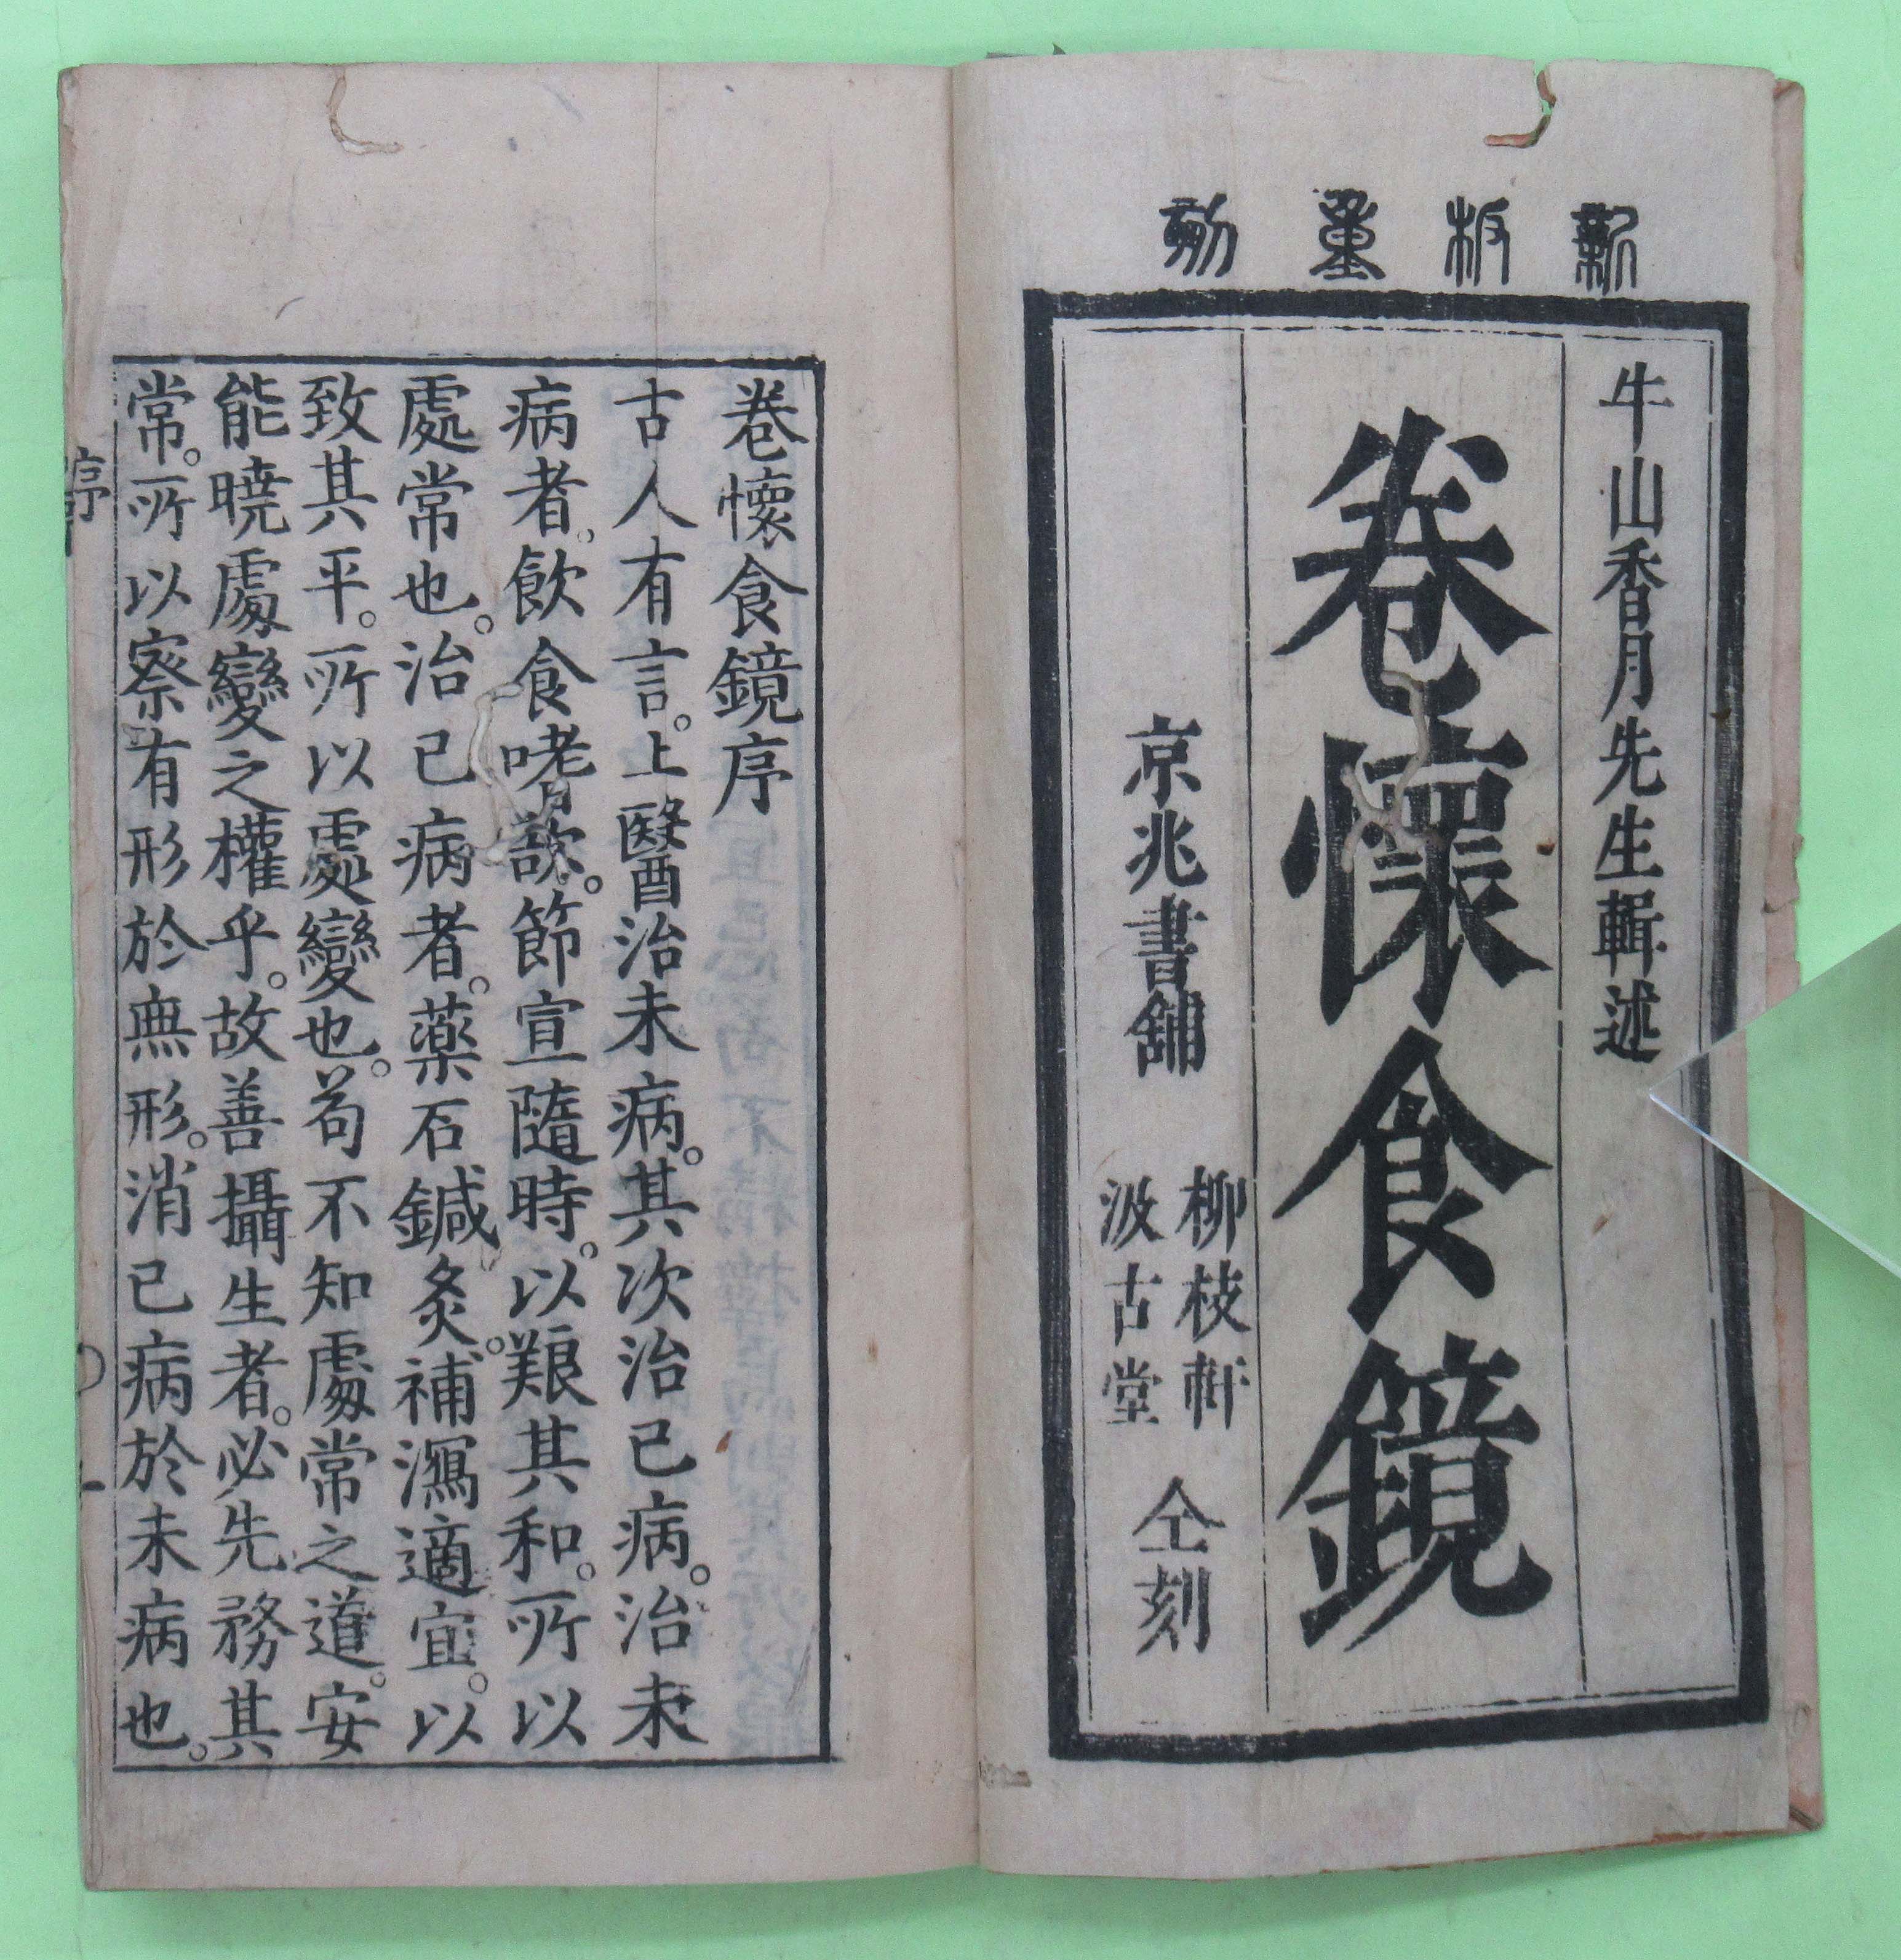 新板重刻
牛山香月先生輯述
卷懷食鏡
京兆書舗
柳枝軒
汲古堂
仝刻
卷懷食鏡序
古人有言。上醫治未病。其次治已病。治未
病者。飲食嗜欲。節宣隨時。以艱其和。所以
處常也。治已病者。藥石鍼灸。補瀉適宜。以
致其平。所以處變也。苟不知處常之道。安
能曉處變之權乎。故善攝生者。必先務其
常。所以察有形於無形。消已病於未病也。
序